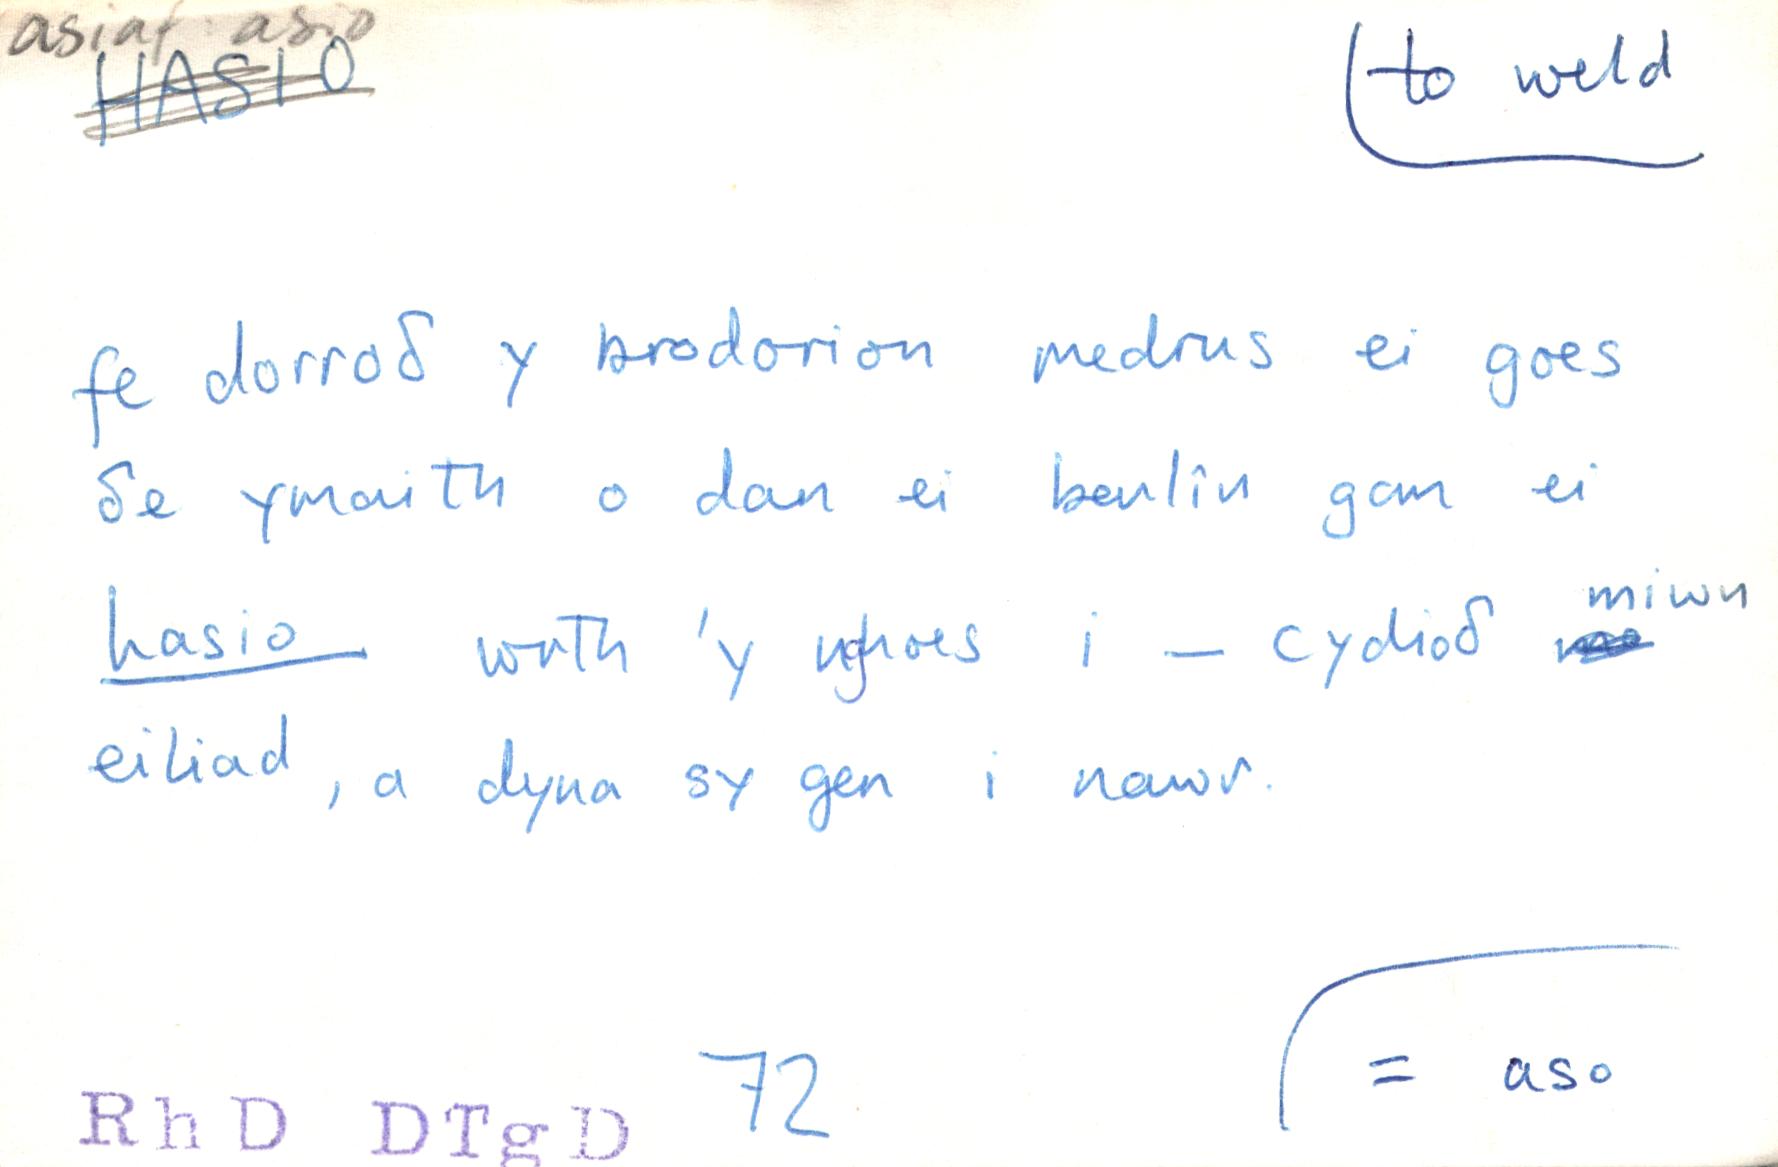 asiaf: asio
HASIO
to weld
fe dorroδ y brodorion medrus ei goes
δe ymaith o dan ei benlîn gam ei
hasio wrth 'y nghoes i – cydioδ miwn
eiliad, a dyna sy gen i nawr.
= aso
RhD DTgD 72